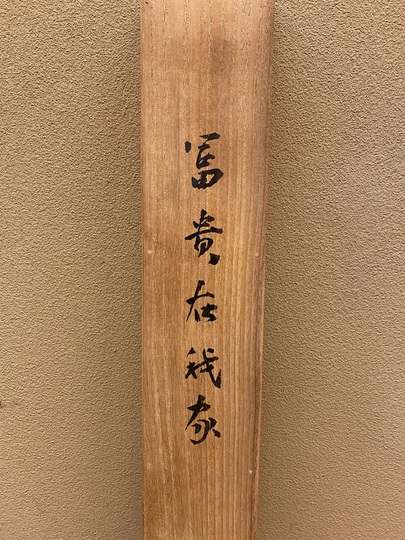 富貴在我家